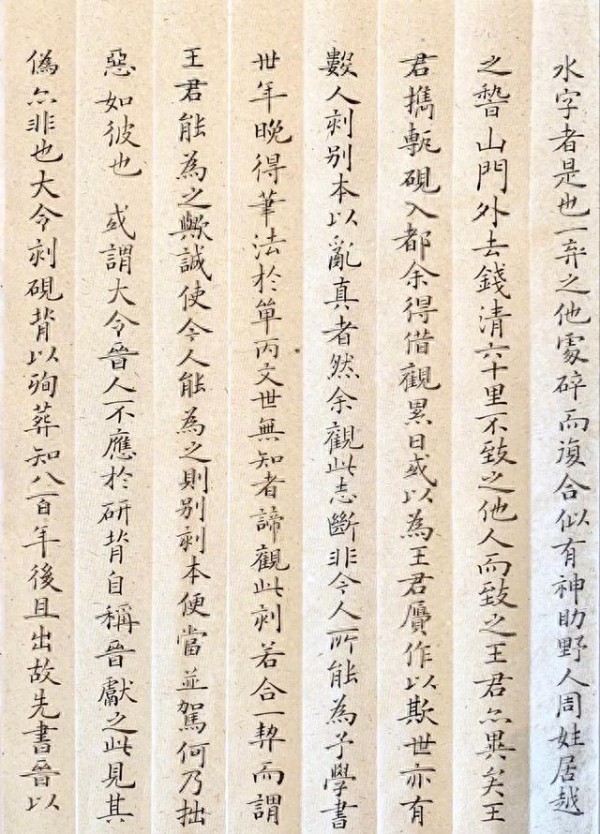 水字者是也一弃之他處碎而復合似有神助野人周姓居越
之嵆山門外去錢清六十里不致之他人而致之王君亦異矣王
君携甎硯入都余得借觀累日或以為王君贋作以欺世亦有
數人刻别本以亂真者然余觀此志斷非今人所能為予學書
卅年晚得筆法於單丙文世無知者諦觀此刻若合一契而謂
王君能為之歟誠使今人能為之則别刻本便當並駕何乃拙
惡如彼也或謂大令晉人不應於研背自稱晉獻之此見其
偽亦非也大令刻硯背以殉葬知八百年後且出故先書晉以